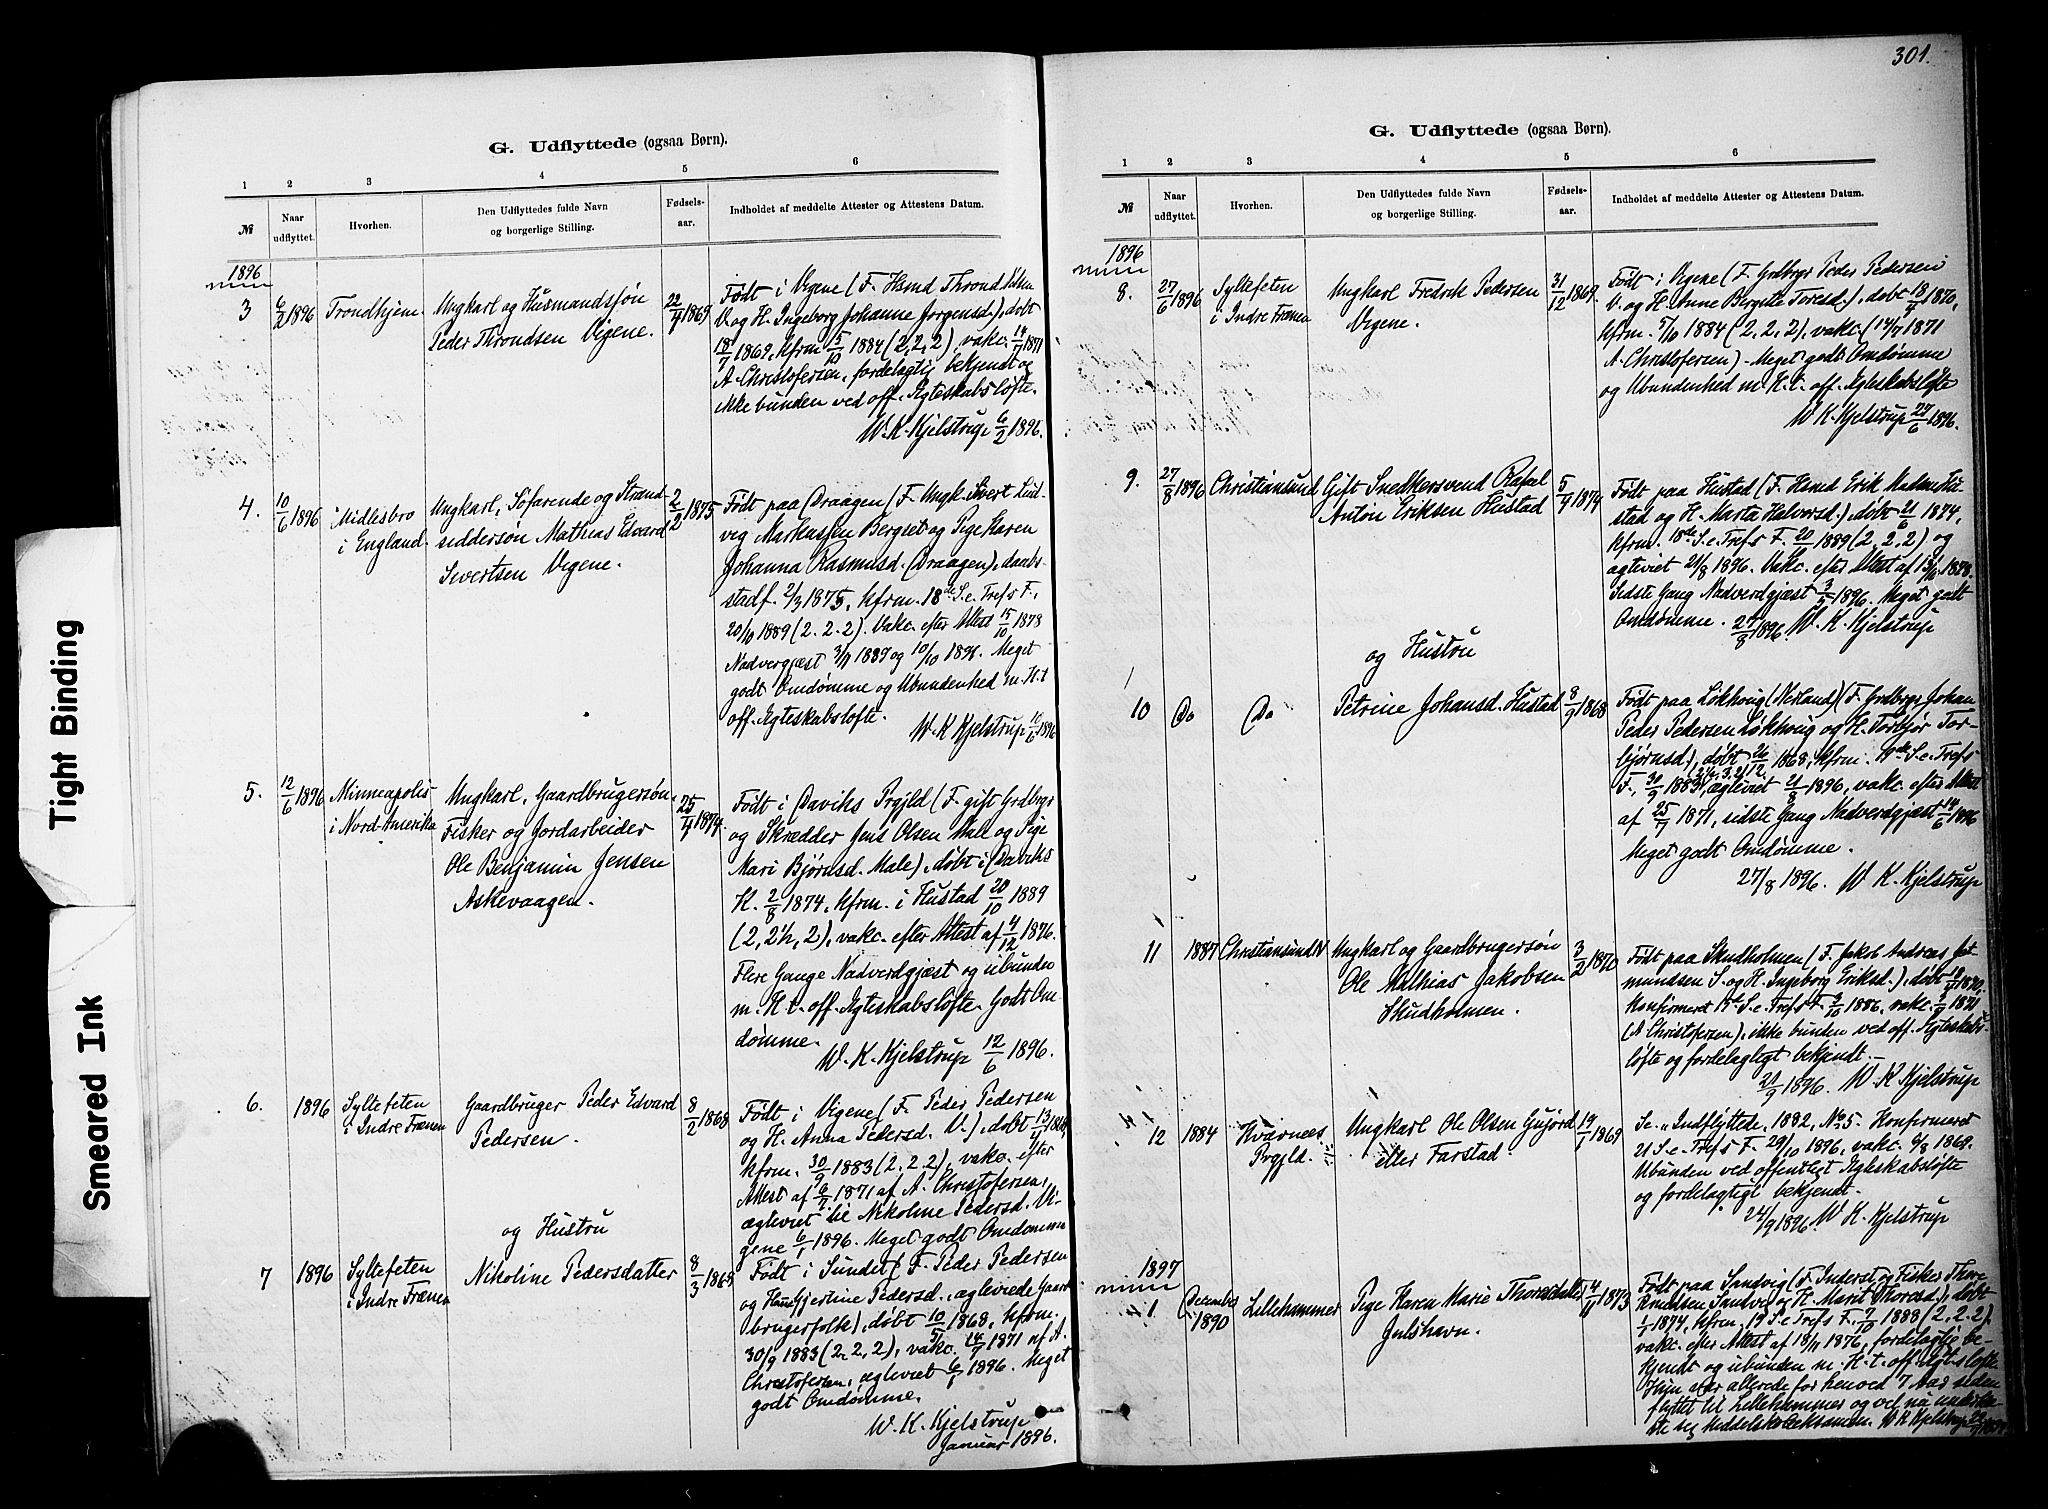 301.
G. Udflyttede (ogsaa Børn).
1 2 3 4 5 6
№
Naar udflyttet.
Hvorhen.
Den Udflyttedes fulde Navn
og borgerlige Stilling.
Fødsels-
aar.
Indholdet af meddelte Attester og Attestens Datum.
1896
3 6/2 1896 Trondhjem Ungkarl og Husmandssøn 22/4 1869
Peder Throndsen Vigene.
Født i Vigene (F. Hsmd Thrond
V. og H. Ingeborg Johanne Jørgensd.), døbt
18/7 1869, kfrm. 5/10 1884 (2, 2, 2), vakc. 14/7 1871
A. Christofersen, fordelagtig bekjendt og
ikke bunden ved off. Ægteskabsløfte.
W. K. Kjelstrup 6/2 1896.
4. 10/6 1896 Midlesbro Ungkarl, Søfarende og Strand- 2/2 1875
i England. siddersøn Mathias Edvard
Sivertsen Vigene.
Født paa Draagen (F. Ungk. Sivert Lud-
vig Markussen Bergset og Pige Karen
Johanna Rasmusd. Draagen), daabs-
stadf. 2/3 1875, kfrm. 18de S. e. Trefs F.,
20/10 1889 (2. 2. 2). Vakc. efter Attest 15/10 1878
Nadvergjæst 3/11 1889 og 10/10 1898. Meget
godt Omdømme og Ubundenhed m. H. t
off. Ægteskabsløfte.
W. K Kjelstrup 10/6 1896
5. 12/6 1896 Minneapolis Ungkarl, Gaardbrugersøn, 25/4 1874.
i Nord-Amerika Fisker og Jordarbeider
Ole Benjamin Jensen
Askevaagen.
Født i Daviks Prgjld (F. gift Grdbrgr
og Skrædder Jens Olsen Male og Pige
Mari Bjørnsd. Male), døbt i Daviks
K. 2/8 1874, kfrm. i Hustad 20/10 1889
(2, 2½, 2), vakc. efter Attest af 4/12 1876.
Flere Gange Nadverdgjæst og ubunden
m. H. t. off. Ægteskabsløfte. Godt Om-
dømme.
W. K. Kjelstrup 12/6 1896.
6. 1896 Syltefeten Gaardbruger Peder Edvard 8/2 1868
i Indre Frænen Pedersen.
Født i Vigene (F. Peder Pedersen
og H. Anna Pedersd. V.), døbt 13/4 1868,
kfrm. 30/9 1883 (2. 2. 2), vakc. efter
Attest af 6/7 1871 af A. Christofersen,
ægteviet til Nikoline Pedersd. Vi-
gene 6/1 1896. Meget godt Omdømme
og Hustru
7 1896 Syltefeten Nikoline Pedersdatter 8/3 1868
i Indre Frænen
Født i Sundet (F. Peder Pedersen
og Hans Gjertine Pedersd., ægteviede Gaard-
brugerfolk), døbt 10/5 1868, kfrm.
30/9 1883 (2, 2, 2), vakc. 14/7 1871 af A.
Christofersen, ægteviet 6/1 1896. Meget
godt Omdømme.
W. K. Kjelstrup
Januar 1896.
G. Udflyttede (ogsaa Børn).
1 2 3 4 5 6
№
Naar udflyttet.
Hvorhen.
Den Udflyttedes fulde Navn
og borgerlige Stilling.
Fødsels-
aar.
Indholdet af meddelte Attester og Attestens Datum.
1896
8. 27/6 1896 Syltefeten Ungkarl Fredrik Pedersen 31/12 1869.
i Indre Frænen Vigene.
Født i Vigene (F. Grdbrgr Peder Pedersen
V. og H. Anne Bergitte Toresd.), døbt 18/4 1870,
kfrm. 5/10 1884 (2, 2, 2), vakc. (14/7 1871
A. Christofersen). Meget godt Omdømme
og Ubundenhed m. H. t. off. Ægteskabsløfte
W K. Kjelstrup 27/6 1896.
9. 27/8 1896 Christiansund Gift Snedkersvend Rafael 5/4 1874
Anton Eriksen Hustad
Født paa Hustad (F. Hsmd Erik Hu-
stad og H. Marta Halvorsd.), døbt 21/6 1874,
kfrm. 18de S. e. Trefs F. 20/10 1889 (2. 2. 2) og
ægteviet 21/8 1896. Vakc. efter Attest af 15/10 1878.
Sidste Gang Nadverdgjæst 3/5 1896. Meget godt
Omdømme. 27/8 1896. W. K. Kjelstrup
og Hustru
10 Do Do Petrine Johansd. Hustad 8/9 1868
Født paa Løkhoug (Nerland) (F. Grdbrgr Johan
Peder Pedersen Løkhoug og H. Torbjør Tor-
bjørnsd.), døbt 26/12 1868, kfrm. S. e. Trefs
F., 30/9 1883, ægteviet 21/8 1896, vakc. efter Attest
af 25/7 1871, sidste Gang Nadverdgjæst 14/6 1896
Meget godt Omdømme.
27/8 1896. W K. Kjelstrup
11 1887 Christiansund N Ungkarl og Gaardbrugersøn 3/2 1870
Ole Mathias Jakobsen
Skudholmen.
Født paa Skudholmen (F. Jakob Andreas
mundsen S. og H. Ingeborg Eriksd.), døbt 1870.
Konfirmeret S. e. Trefs F. 3/10 1886, vakc. 1871
(A Christofersen), ikke bunden ved off. Ægteskabs-
løfte og fordelagtigt bekjendt.
21/9 1896. W. K Kjelstrup
12 1884 Kvernes Ungkarl Ole Olsen Gujord 19/1 1869
Prgjld. eller Farstad.
Se „Indflyttede, 1882, No 5. Konfirmeret
21 S. e. Trefs F. 29/10 1896, vakc. 9/8 1869.
Ubunden ved offentligt Ægteskabsløfte
og fordelagtigt bekjendt.
24/9 1896. W. K. Kjelstrup
1897
1 Decembr 1890 Lillehammer Pige Karen Marie Thoresdatter 14/11 1873
Julshavn.
Født paa Sandvig (F. Inderst og Fisker Thore
Knudsen Sandvig og H. Marit Thoresd.), døbt
1/1 1874, kfrm. 19 S. e. Trefs F. 7/10 1888 (2. 2. 2),
vakc. efter Attest af 18/11 1876, fordelagtig be-
kjendt og ubunden m. H. t. off. Ægtskbsløfte.
Hun var allerede for henved 7 Aar siden
flyttet til Lillehammer og vil nu underka-
ste sig Middelskoleeksamen. W K Kjelstrup
Tight Binding
Smeared Ink